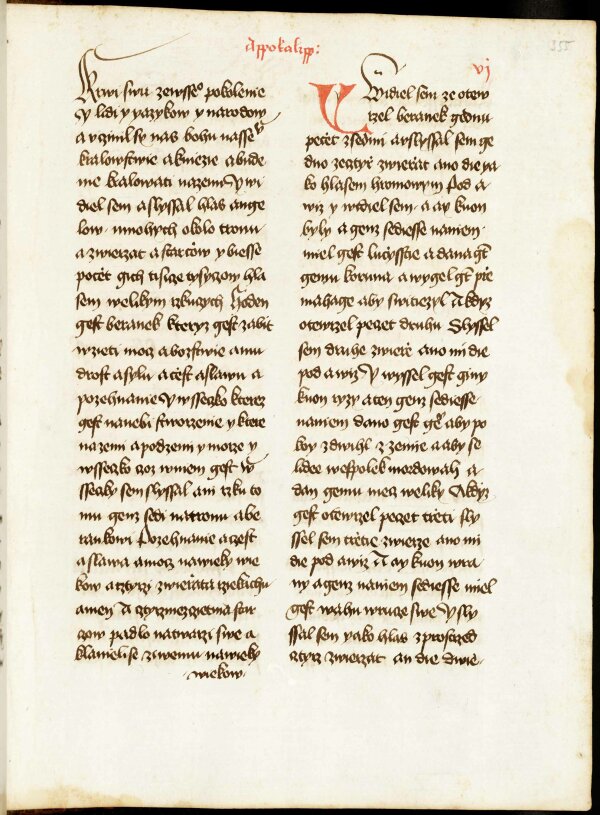 Appokalipp:
355
vj
Krwi swu zewsseo pokolenie
y lidi y yazykow y narodow
a vczinil sy nas bohu nassemu
kralowstwie a kniezie a bude
me kralowati nazemi Y wi
diel sem a slyssal hlas ange
low mnohych okolo tronu
a zwierzat a starcow y biesse
pocet gich tisicze tysyczow hla
sem welikym rzkuczych Hoden
gest beranek kteryz gest zabit
wzieti mocz a bozstwie a mu
drost a sylu a czest a slawu a
pozehnanie Y wsseczko kterez
gest nanebi stworzenie y ktere
nazemi a podzemi y morze y
wsseczko czoz wniem gest W
sseczky sem slyssal ani rzku to
mu genz sedi natronu a be
rankowi Pozehnanie a czest
a slawa a mocz nawieky wie
kow a cztyrzi zwierzata rziekachu
amen A cztyrzmezcietma star
czow padlo natwarzi swe a
klanieli se ziwemu nawieky
wiekow
Y Widiel sem ze otew
rzel beranek gednu
peczet zsedmi a vslyssal sem ge
dno zecztyrz zwierzat ano die ya
ko hlasem hromowym Pod a
wiz y widiel sem a ay kuon
byly a genz sediesse naniem
miel gest luczisstie a dana gt
gemu koruna a wygel gt prze
mahage aby switiezyl A kdyz
otewrzel peczet druhu Slyssel
sem druhe zwierze ano mi die
pod a wiz Y wyssel gest giny
kuon ryzy a ten genz sediesse
naniem dano gest ge aby po
koy zdwihl z zemie a aby se
lidee wespolek mordowali a
dan gemu mecz weliky A kdyz
gest otewrzel peczet trzeti sly
ssel sem trzetie zwierze ano mi
die pod a wiz A ay kuon wra
ny a genz naniem sediesse miel
gest wahu wrucze swe Y sly
ssal sem yako hlas zprostrzed
cztyrz zwierzat an die dwie